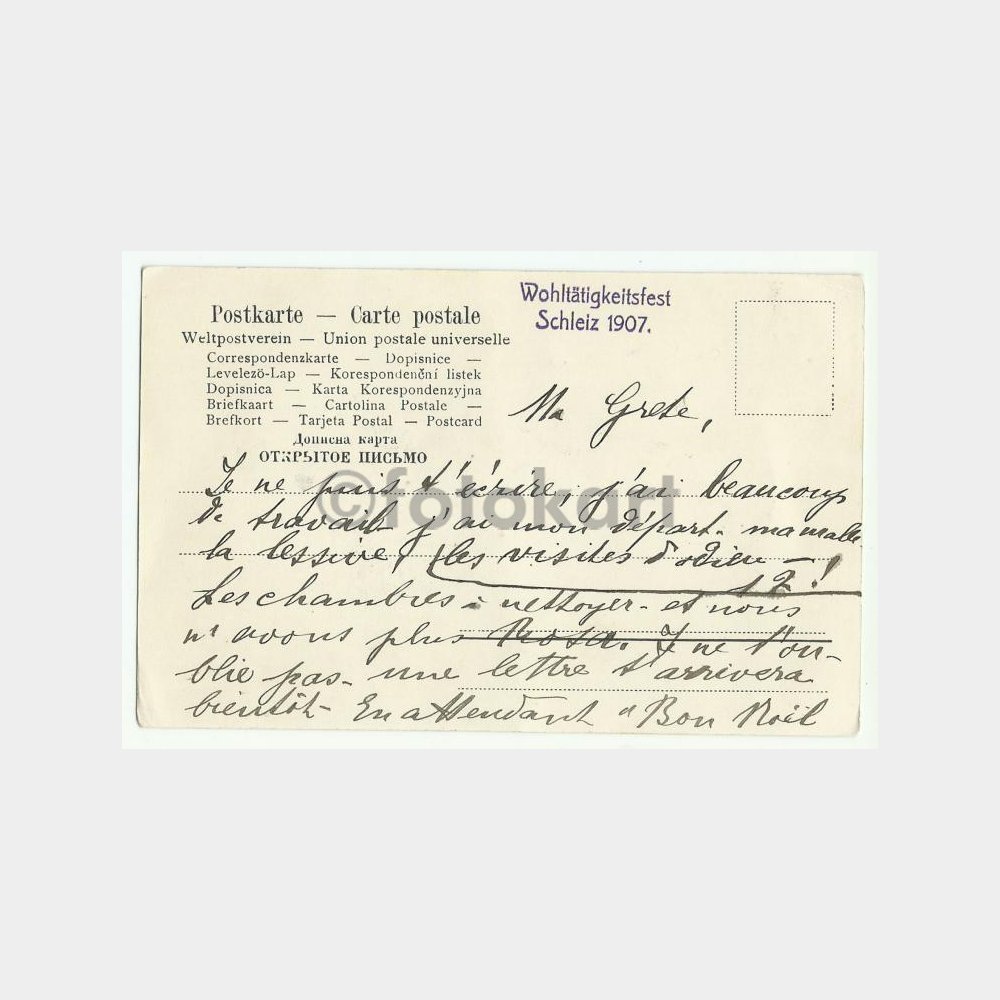 Wohltätigkeitsfest
Schleiz 1907.
Postkarte — Carte postale
Weltpostverein — Union postale universelle
Correspondenzkarte — Dopisnice —
Levelezö-Lap — Korespondenční listek
Dopisnica — Karta Korespondenzyjna
Briefkaart — Cartolina Postale —
Brefkort — Tarjeta Postal — Postcard
Дописна карта
ОТКРЫТОЕ ПИСЬМО
Ma Grete,
Je ne puis t'écrire, j'ai beaucoup
de travail j'ai mon départ - ma malle
la lessive, (les visites d'adieu —
12!
Les chambres à nettoyer - et nous
n'avons plus Rosa. Je ne t'ou-
blie pas - une lettre t'arrivera
bientôt - En attendant "Bon Noël
©fotokart